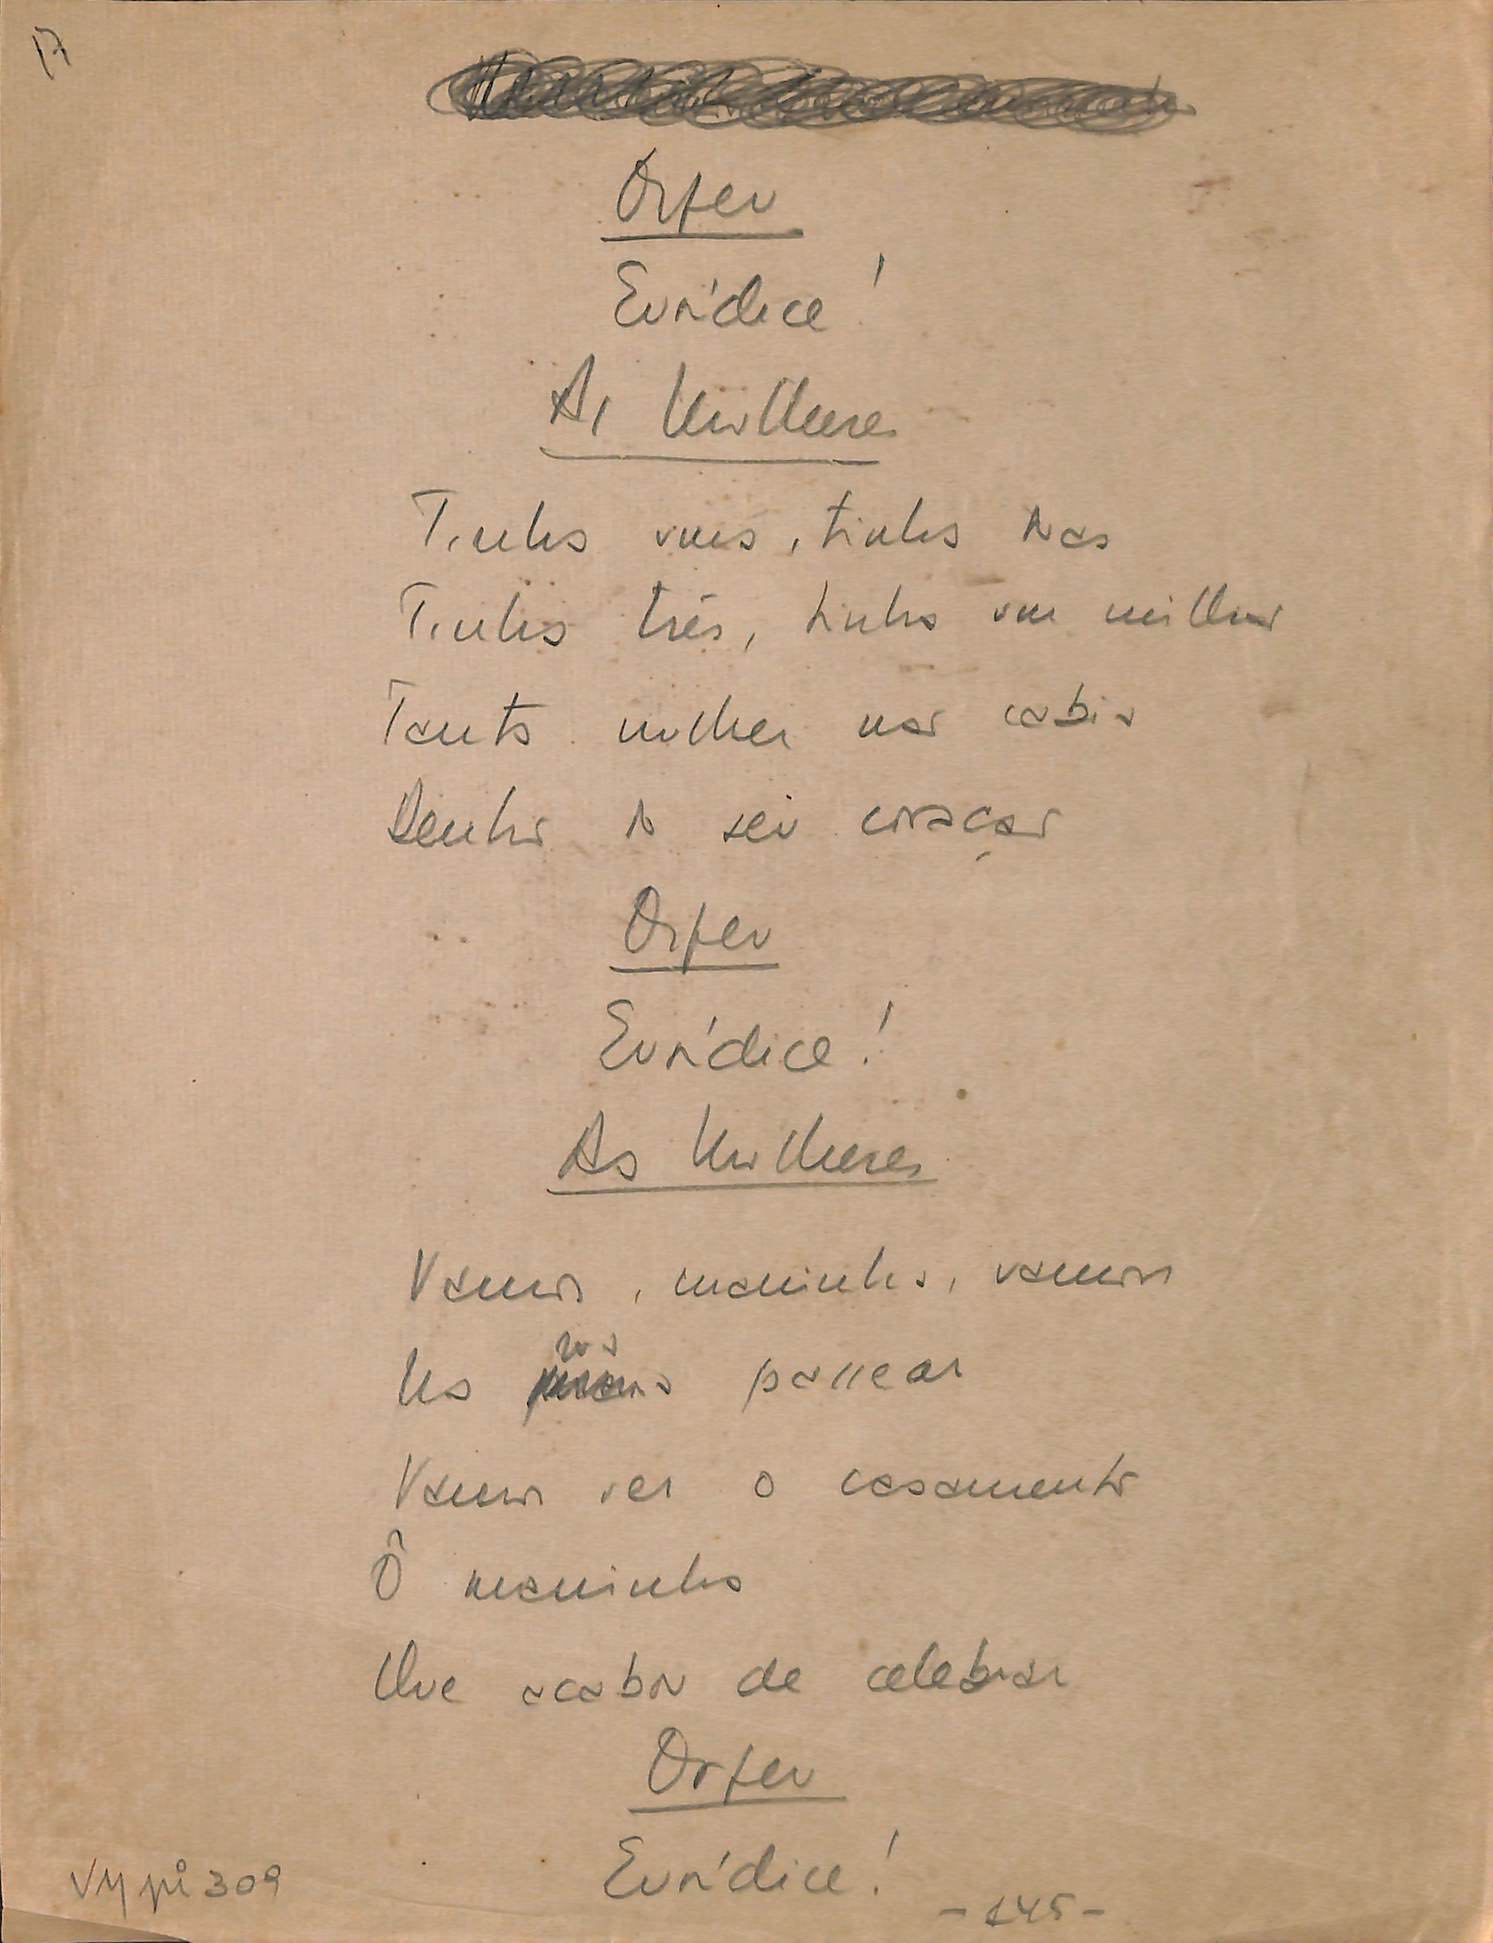 17
Orfeu
Eurídice!
As Mulheres
Tinha uma, tinha duas
Tinha três, tinha um milhão
Tanta mulher não cabia
Dentro do seu coração
Orfeu
Eurídice!
As Mulheres
Vamos, maninha, vamos
rua
Na passear
Vamos ver o casamento
Ô maninha
Que acabou de celebrar
Orfeu
Eurídice!
VM pi 309
-145-